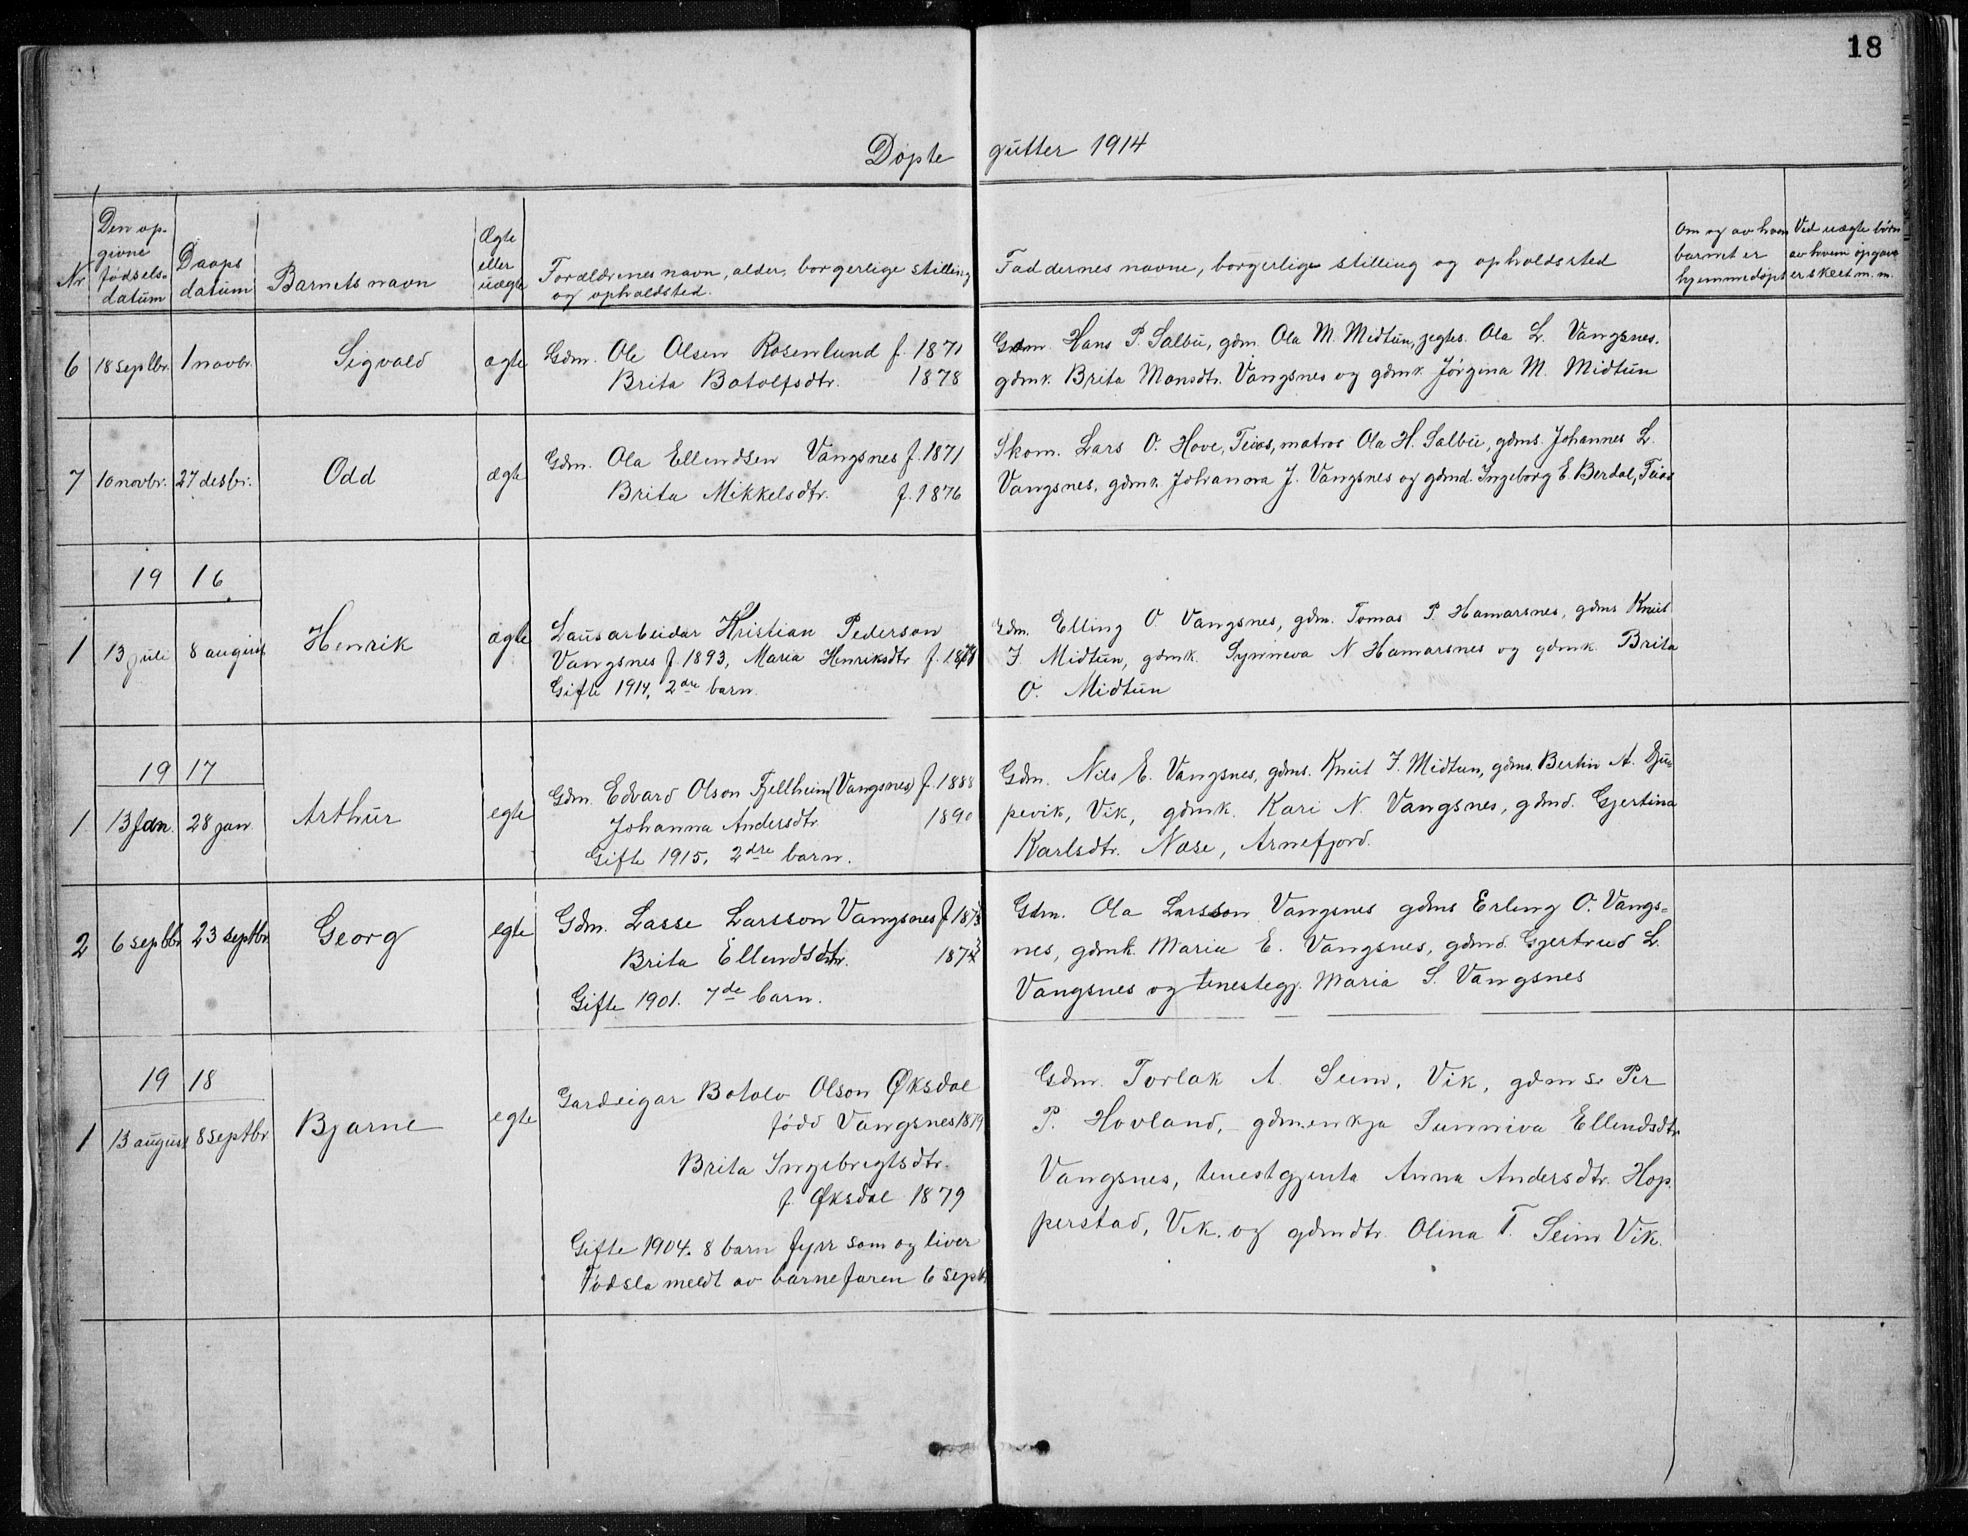 18
Døpte gutter 1914
Nr. | Den opgivne fødselsdatum | Daaps datum | Barnets navn | Ægte eller uægte | Forældrenes navn, alder, borgerlige stilling og opholdsted. | Faddernes navne, borgerlige stilling og opholdssted | Om og av hvem barnet er hjemmedøpt | Ved uægte børn av hvem opgave er skeet m. m.
6 | 18 septbr. | 1 novbr. | Sigvald | ægte | Gdm. Ole Olsen Rosenlund f. 1871 | Gdm. Hans P. Salbu, gdm. Ola M. Midtun, jegtes. Ola L. Vangsnes.
Brita Botolfsdtr. 1878 | gdmk. Brita Monsdtr. Vangsnes og gdmk. Jørgina M. Midtun
7 | 10 novbr. | 27 desbr. | Odd | ægte | Gdm. Ola Ellendsen Vangsnes f. 1871 | Skom. Lars O. Hove, Feios, matros Ola H. Salbu, gdms. Johannes L.
Brita Mikkelsdtr. f. 1876 | Vangsnes, gdmk. Johanna J. Vangsnes og gdmd. Ingeborg E. Berdal, Feios
19 16
1 | 13 juli | 8 august | Henrik | ægte | Lausarbeidar Kristian Pederson | Gdm. Elling O. Vangsnes, gdm. Tomas P. Hamarsnes, gdms Knut
Vangsnes f. 1893, Maria Henriksdtr f. | J. Midtun, gdmk. Synneva N Hamarsnes og gdmk. Brita
Gifte 1914, 2dre barn. | O. Midtun
19 17
1 | 13 jan. | 28 jan. | Arthur | egte | Gdm. Edvard Olson Fjellheim (Vangsnes) f. 1888 | Gdm. Nils E. Vangsnes, gdms. Knut J. Midtun, gdms. Bertin A. Dju-
Johanna Andersdtr. 1890 | pevik, Vik, gdmk. Kari N. Vangsnes, gdmd. Gjertina
Gifte 1915. 2dre barn. | Karlsdtr. Nase, Arnefjord.
2 | 6 septbr | 23 septbr. | Georg | egte | Gdm. Lasse Larsson Vangsnes f. | Gdm. Ola Larsson Vangsnes gdms Erling O. Vangs=
Brita Ellendsdtr. | nes, gdmk. Maria E. Vangsnes, gdmd. Gjertrud L.
Gifte 1901. 7de barn. | Vangsnes og tenestegj. Maria S. Vangsnes
19 18
1 | 13 august | 8 septbr | Bjarne | egte | Gardeigar Botolv Olson Øksdal | Gdm. Torlak A. Seim, Vik, gdms. Per
fødd Vangsnes 1879 | P. Hovland, gdmenkja Sunniva Ellendsdtr
Brita Ingebrigtsdtr. | Vangsnes, tenestgjenta Anna Andersdtr. Hop-
f. Øksdal 1879 | perstad, Vik. og gdmdtr. Olina T. Seim Vik.
Gifte 1904. 8 barn fyrr som og liver
Fødsla meldt av barnefaren 6 septbr